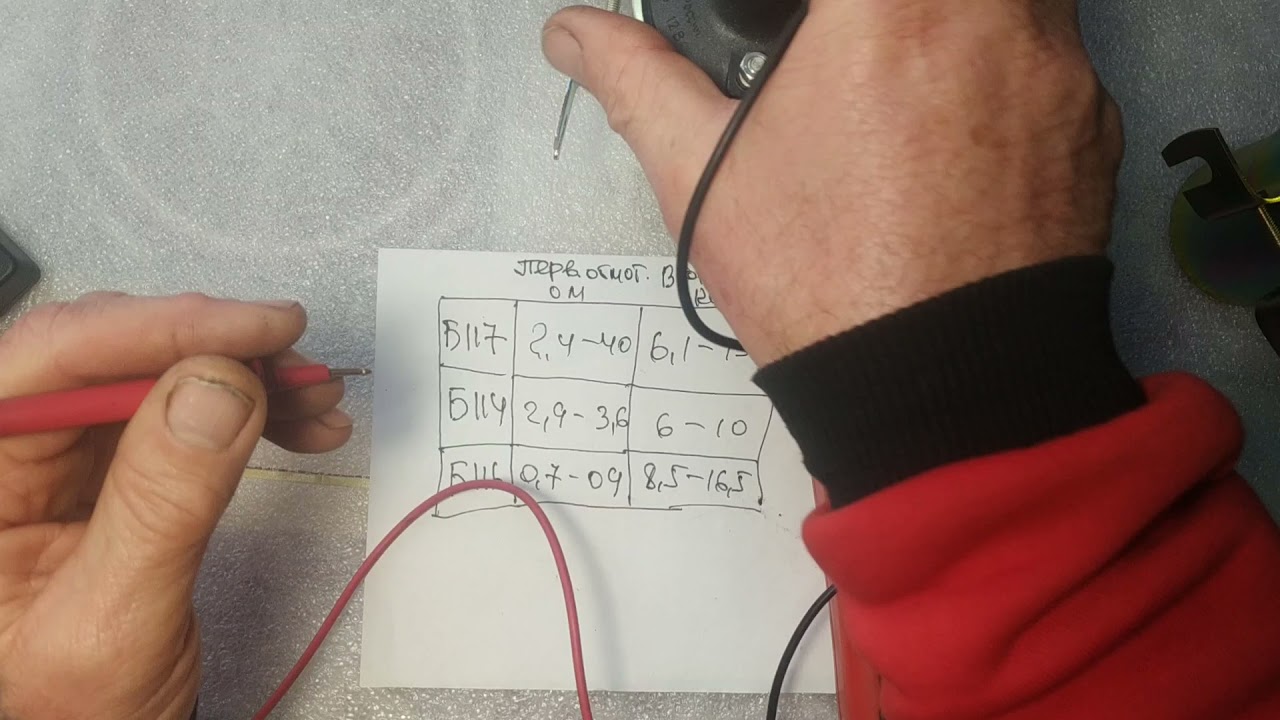 перв. обмот. В
ом
Б117 2,4-40 6,1-
Б114 2,9-3,6 6-10
Б116 0,7-09 8,5-16,5
12В